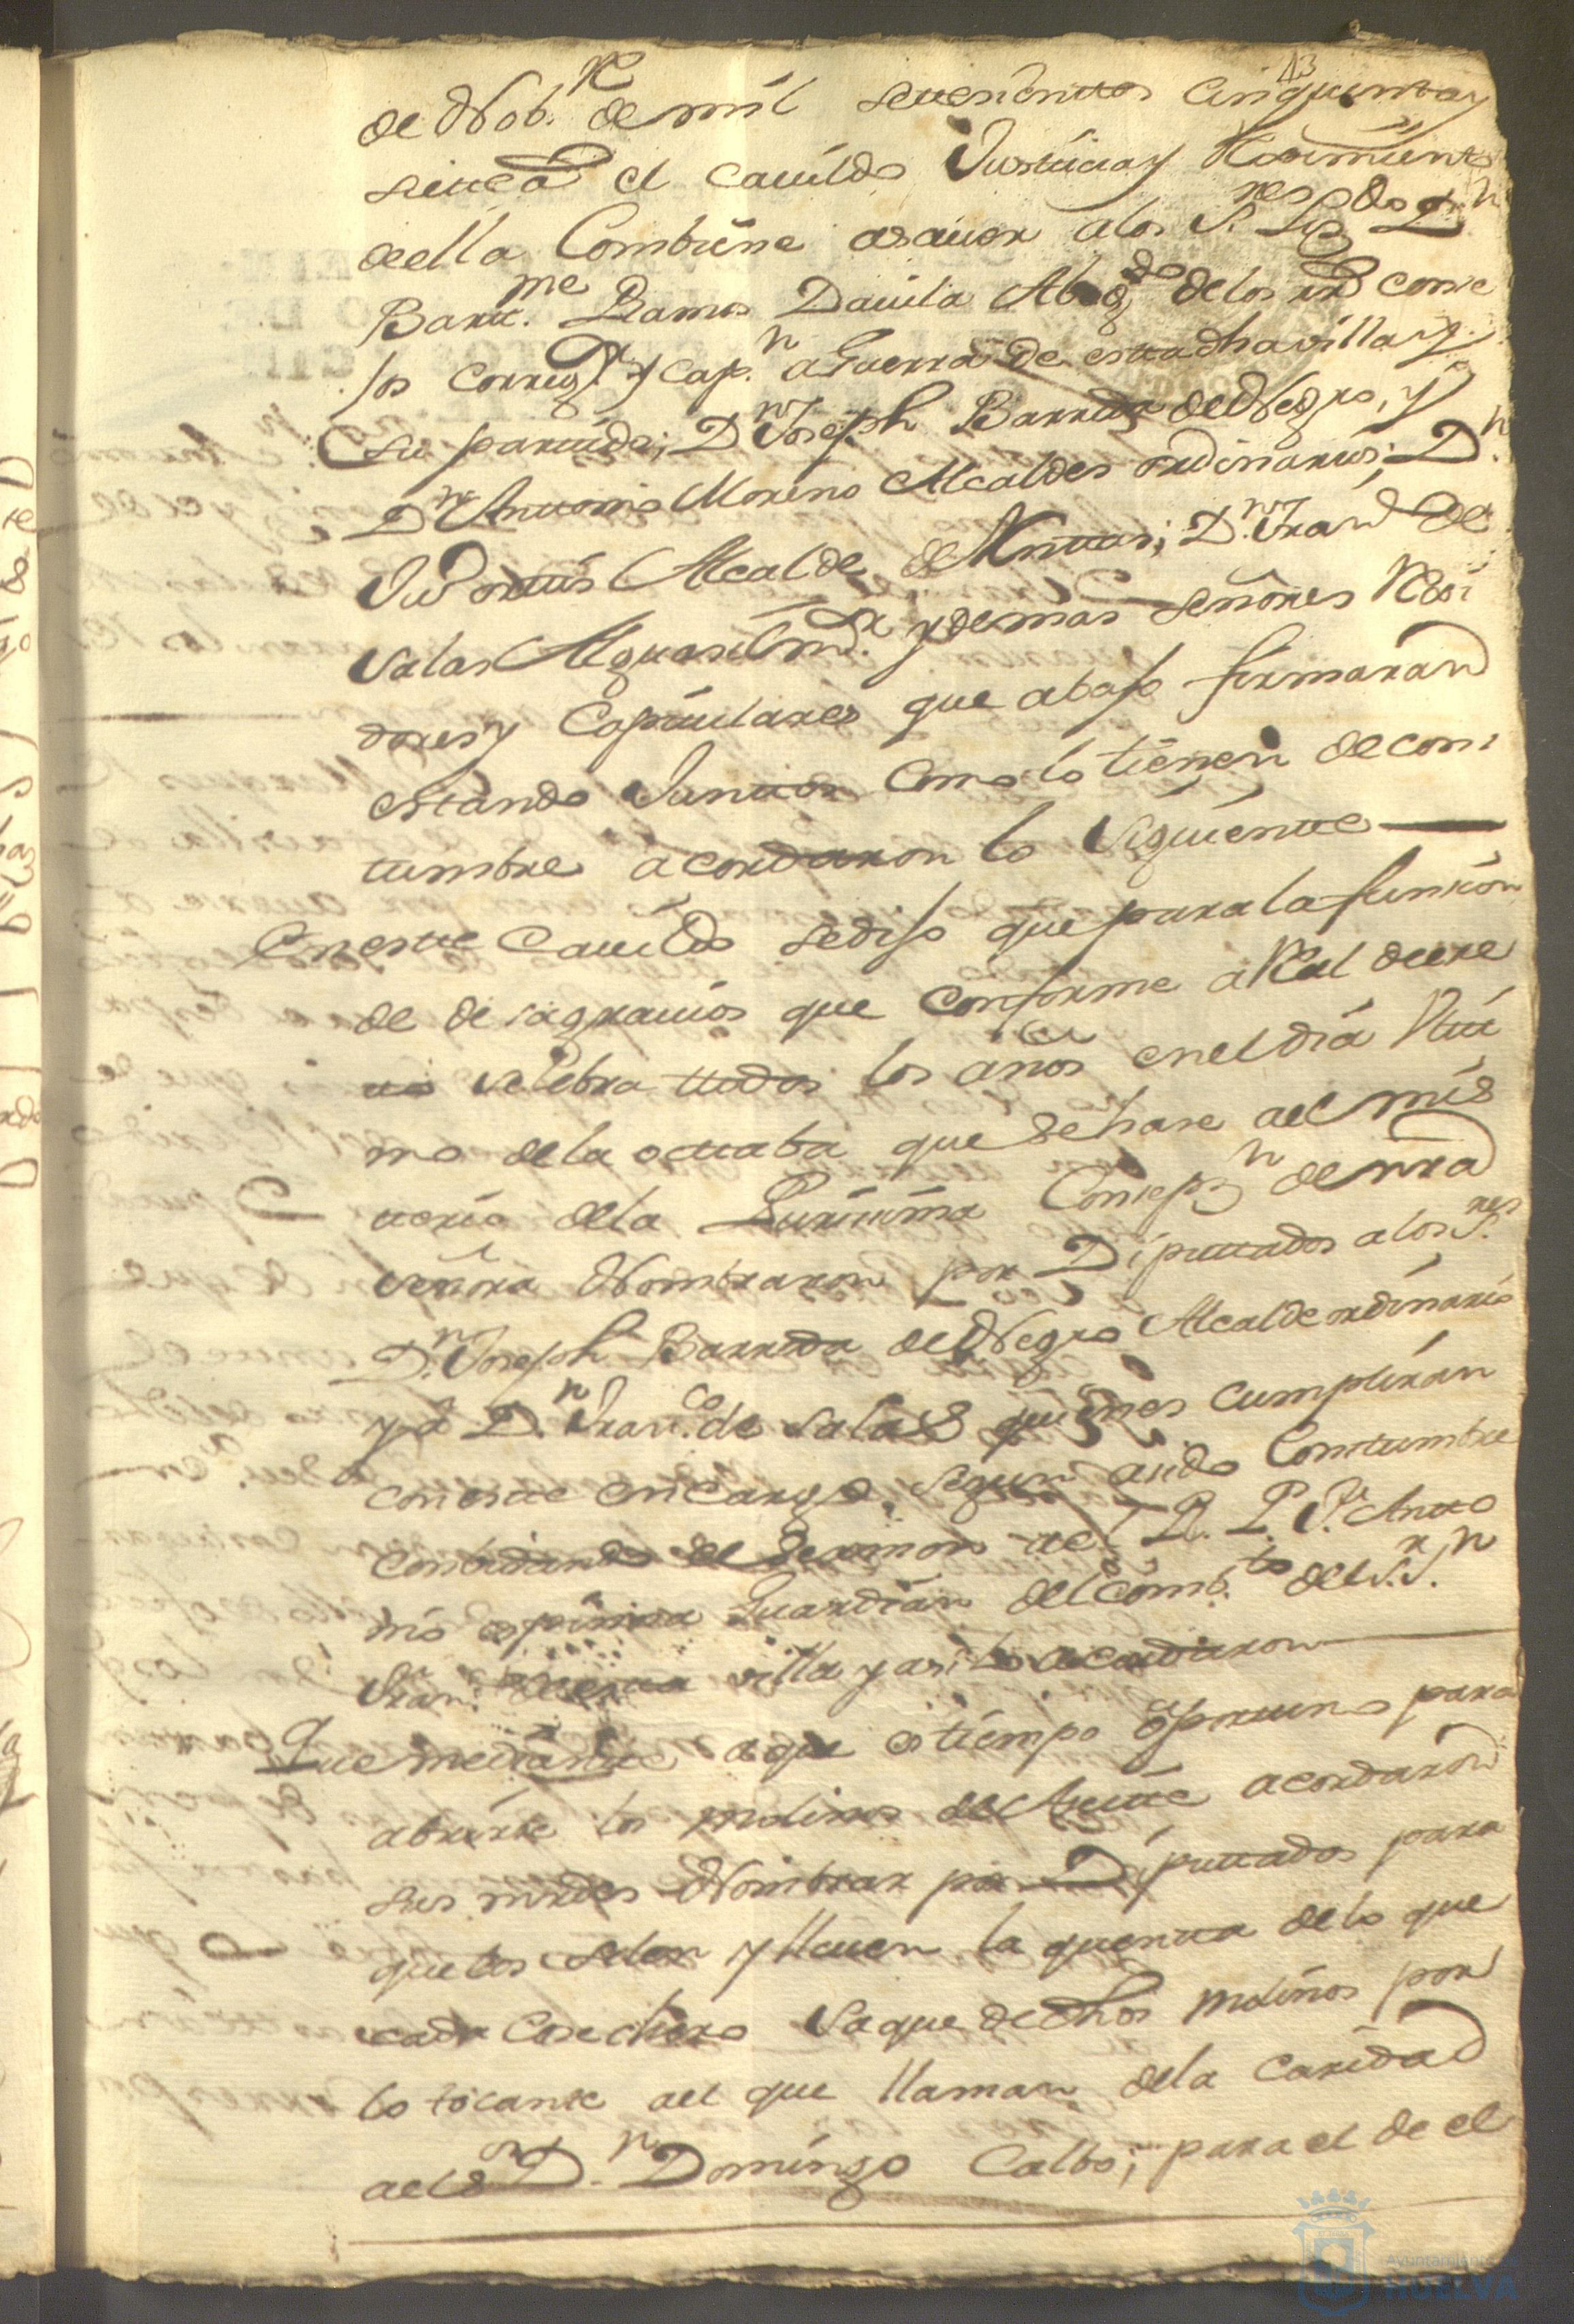 43
de Nob.re de mil setesientos sinquenta y
siete a el cauildo Justicia y Reximiento
de ella Combiene asauer a los S.res Liz.do D.n
Bart.me Ramos Dauila Abog.do de los r.s conse
jos correg.r y cap.n a Guerra de esta dha villa y
su partido; D.n Joseph Barreda de Negro, y
D.n Antonio Moreno Alcaldes ordinarios; D.n
Alcalde de Aguas; D.n Fran.co de
Salas Alguasil m.or y demas señores Rexi
dores y Capitulares que abajo firmaran
estando Juntos Como lo tienen de cos
tumbre acordaron lo siguiente
En este Cauildo se dijo que para la funsion
de desagrauios que conforme a Real decre
to selebra ttodos los años en el dia Ulti
mo de la octtaba que se hase a el mis
terio de la Purissima Consepz.n de nra
señora Nombraron por Diputtados a los S.res
D.n Joseph Barreda de Negro Alcalde ordinario
y a D.n Fran.co de Salas quienes cumpliran
con este encargo segun a sido Constumbre
conbidando de Sermon a el R. P. Fr. Antto
nio espinosa Guardian del Comb.to del S.r S.n
Fran.co de esta villa y asi lo acordaron
Que mediante a que es tiempo oportuno para
abrirse los molinos de Aseite acordaron
sus mrdes Nombrar por Diputtados para
que los selen y lleuen la quenta de lo que
cada Cosechero saque de dhos molinos por
lo tocante a el que llaman de la caridad
a el S.or D.n Domingo Calbo; para el de el
Ayuntamiento de
HUELVA